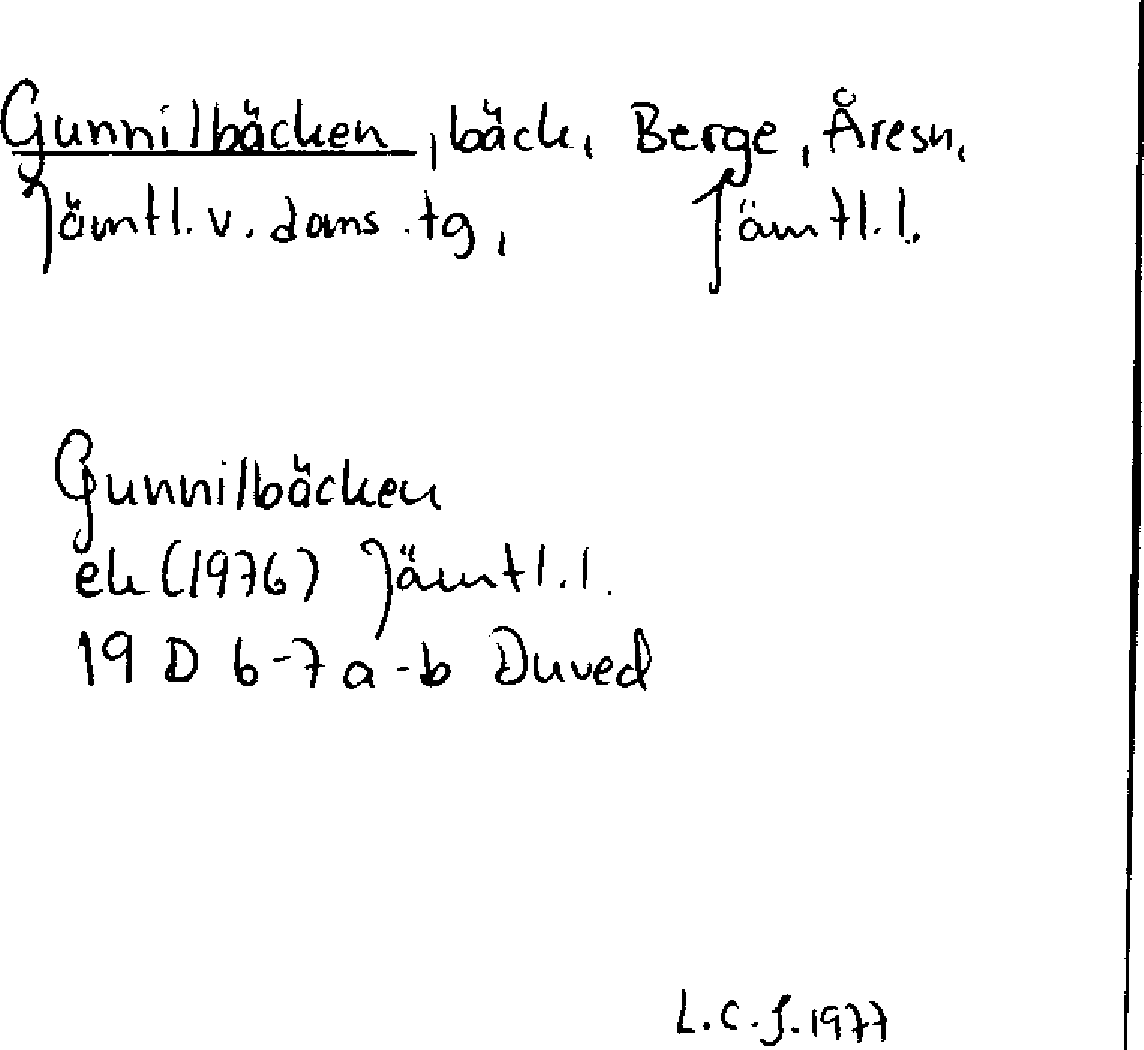 Gunnilbäcken, bäck, Berge, Åresn,
Jämtl. v. doms. tg, Jämtl. l.
Gunnilbäcken
ek (1976) Jämtl. l.
19 D 6-7 a-b Duved
L.C.J. 1977